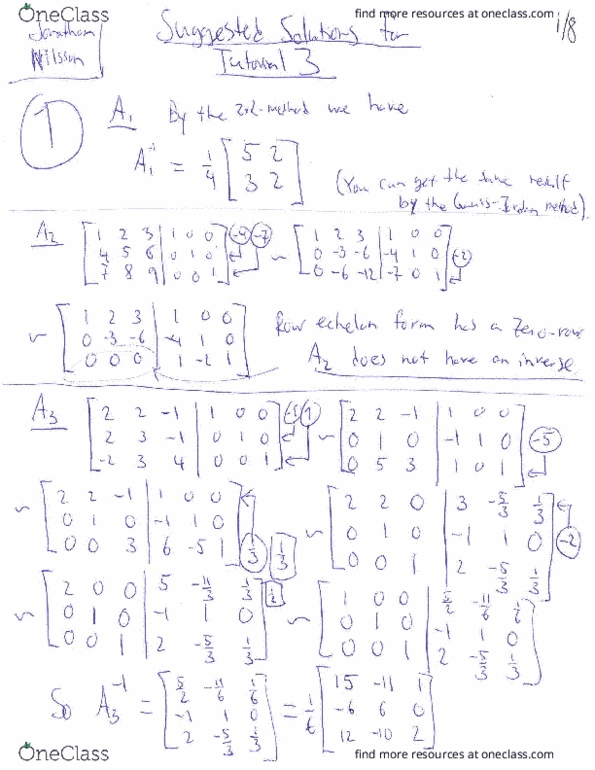 OneClass
find more resources at oneclass.com
Jonathan
Nilsson
Suggested Solutions for
Tutorial 3
1/8
1
A1 By the 2x2-method we have
A1^-1 = 1/4 [5 2
3 2]
(You can get the same result
by the Gauss-Jordan method).
A2 [1 2 3 | 1 0 0
4 5 6 | 0 1 0
7 8 9 | 0 0 1] -4 -7
~ [1 2 3 | 1 0 0
0 -3 -6 | -4 1 0
0 -6 -12 | -7 0 1] -2
~ [1 2 3 | 1 0 0
0 -3 -6 | -4 1 0
0 0 0 | 1 -2 1]
Row echelon form has a zero-row
A2 does not have an inverse
A3 [2 2 -1 | 1 0 0
2 3 -1 | 0 1 0
-2 3 4 | 0 0 1] 1
~ [2 2 -1 | 1 0 0
0 1 0 | -1 1 0
0 5 3 | 1 0 1] -5
~ [2 2 -1 | 1 0 0
0 1 0 | -1 1 0
0 0 3 | 6 -5 1] 1/3 1/3
~ [2 2 0 | 3 -5/3 1/3
0 1 0 | -1 1 0
0 0 1 | 2 -5/3 1/3] -2
~ [2 0 0 | 5 -11/3 1/3
0 1 0 | -1 1 0
0 0 1 | 2 -5/3 1/3] 1/2
~ [1 0 0 | 5/2 -11/6 1/6
0 1 0 | -1 1 0
0 0 1 | 2 -5/3 1/3]
So A3^-1 = [5/2 -11/6 1/6
-1 1 0
2 -5/3 1/3]
= 1/6 [15 -11 1
-6 6 0
12 -10 2]
OneClass
find more resources at oneclass.com